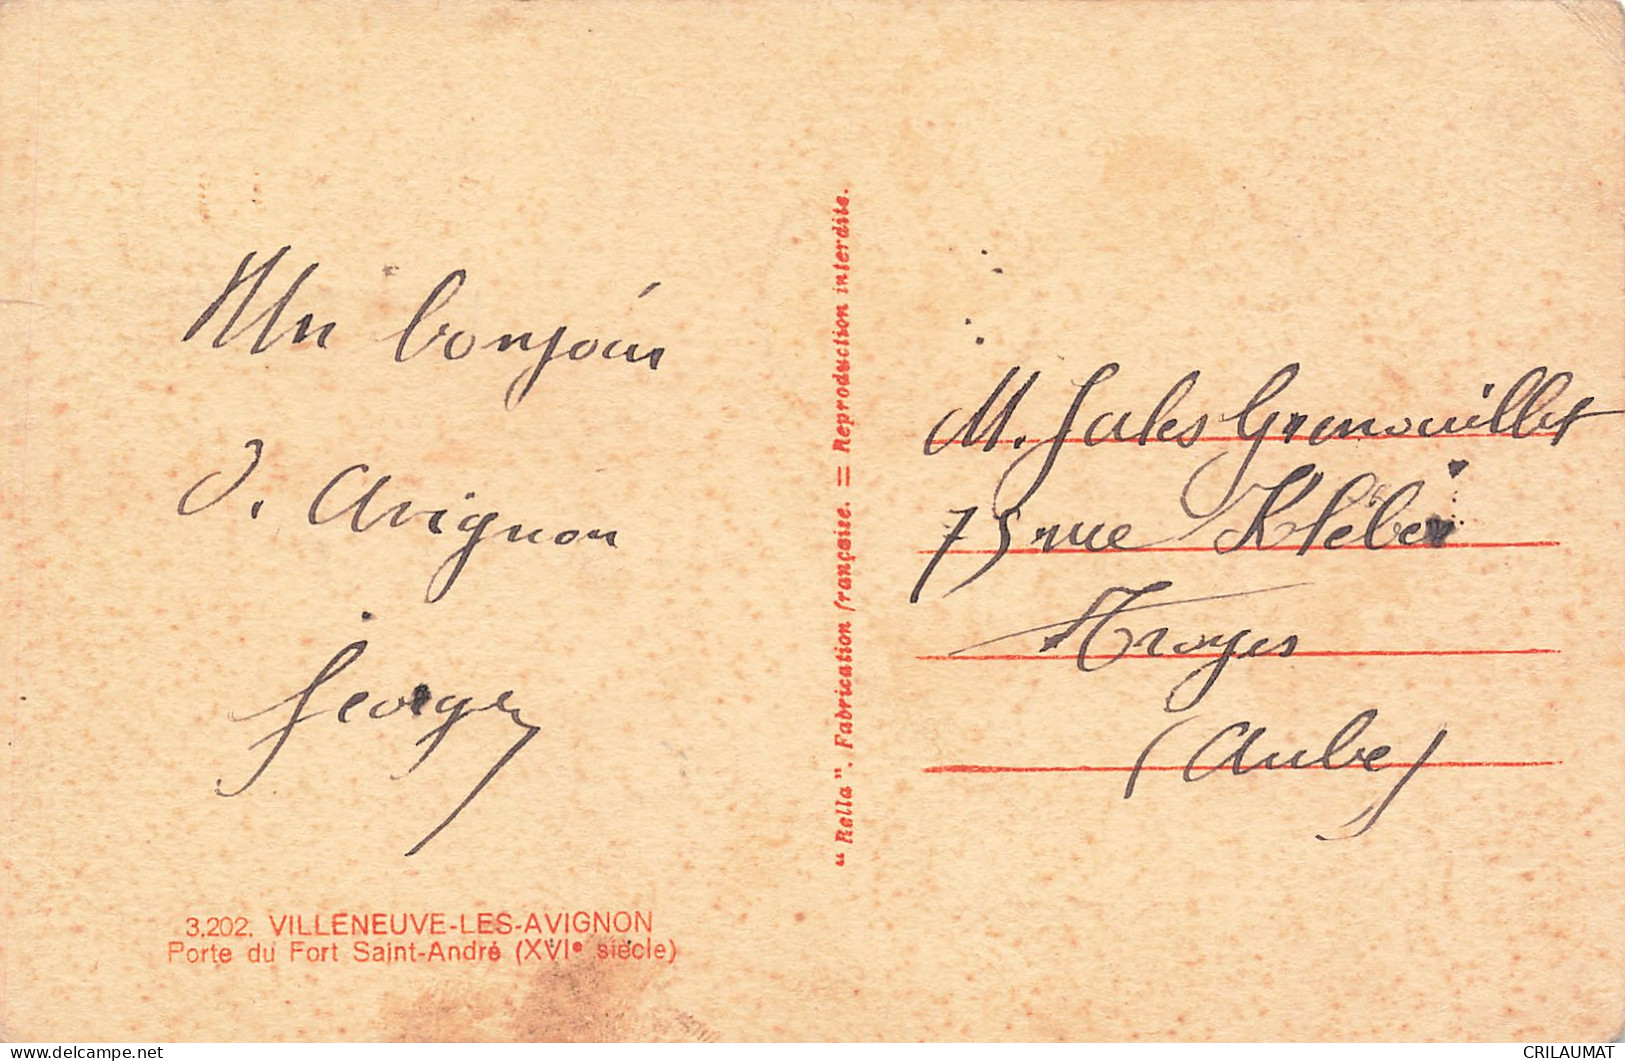 Un bonjour
d. Avignon
Georges
3.202. VILLENEUVE-LES-AVIGNON
Porte du Fort Saint-André (XVIe siècle)
“ Rella ”. Fabrication française. = Reproduction interdite.
M. Jules Grenouillet
75 rue Kléber
Troyes
(Aube)
CRILAUMAT